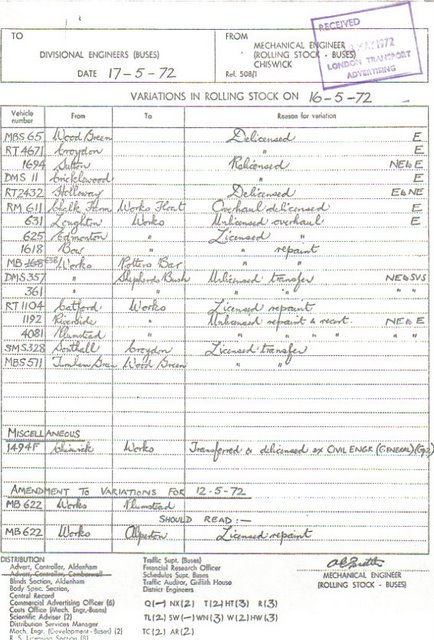 RECEIVED
MAY 1972
LONDON TRANSPORT
ADVERTISING
TO
DIVISIONAL ENGINEERS (BUSES)
DATE 17-5-72
FROM
MECHANICAL ENGINEER
(ROLLING STOCK - BUSES)
CHISWICK
Ref. 508/1
VARIATIONS IN ROLLING STOCK ON 16-5-72
Vehicle number From To Reason for variation
MBS 65 Wood Green Delicensed E
RT 4671 Croydon " E
1694 Sutton Relicensed NE & E
DMS 11 Cricklewood " E
RT 2432 Holloway Delicensed E & NE
RM 611 Chalk Farm Works Float Overhaul delicensed E
631 Loughton Works Unlicensed overhaul E
625 Edmonton " Licensed "
1618 Bow " " repaint
MB 638 Works Potters Bar "
DMS 357 " Shepherds Bush Unlicensed transfer NE & SVS
361 " " " " " "
RT 1104 Catford Works Licensed repaint
1192 Riverside " Unlicensed repaint & recert. NE & E
4081 Plumstead " " " " " "
SMS 328 Southall Croydon Licensed transfer
MBS 571 Turnham Green Wood Green " "
MISCELLANEOUS
1494F Chiswick Works Transferred & delicensed ex CIVIL ENGR (GENERAL)
AMENDMENT TO VARIATIONS FOR 12-5-72
MB 622 Works Plumstead
SHOULD READ :-
MB 622 Works Alperton Licensed repaint
DISTRIBUTION
Advert. Controller, Aldenham
Advert. Controller, Camberwell
Blinds Section, Aldenham
Body Spec. Section,
Central Record
Commercial Advertising Officer (6)
Costs Office (Mech. Engr.-Buses)
Scientific Adviser (2)
Distribution Services Manager
Mech. Engr. (Development - Buses) (2)
R. S. Licensing Section (8)
Traffic Supt. (Buses)
Financial Research Officer
Schedules Supt. Buses
Traffic Audit, Griffith House
District Engineers
Q(-) NX(2) T(2) HT(3) R(3)
TL(2) SW(-) WN(3) W(2) HW(3)
TC(2) AR(2)
MECHANICAL ENGINEER
(ROLLING STOCK - BUSES)